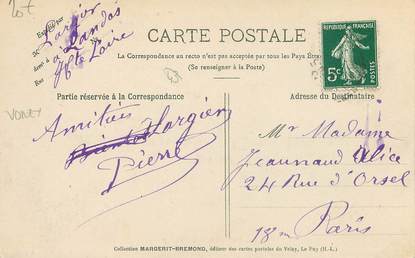 20f
Expédié par
Largier
à Landos
Hte Loire
CARTE POSTALE
La Correspondance au recto n'est pas acceptée par tous les Pays Étrangers
(Se renseigner à la Poste)
RÉPUBLIQUE FRANÇAISE
5c
POSTES
Partie réservée à la Correspondance
Adresse du Destinataire
Amitiés
Largier
Pierre
Mr Madame
Jeannaud Alice
24 Rue d'Orsel
18m Paris
Collection MARGERIT-BREMOND, éditeur des cartes postales du Velay, Le Puy (H.-L.)